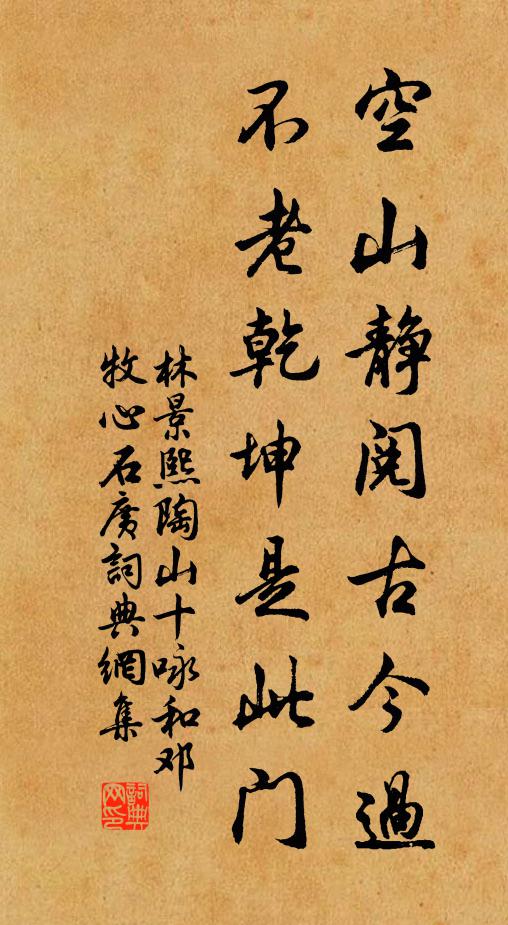 空山静阅古今過
不老乾坤是此门
林景熙陶山十咏和邓
牧心石广詞典網集
詞典网印